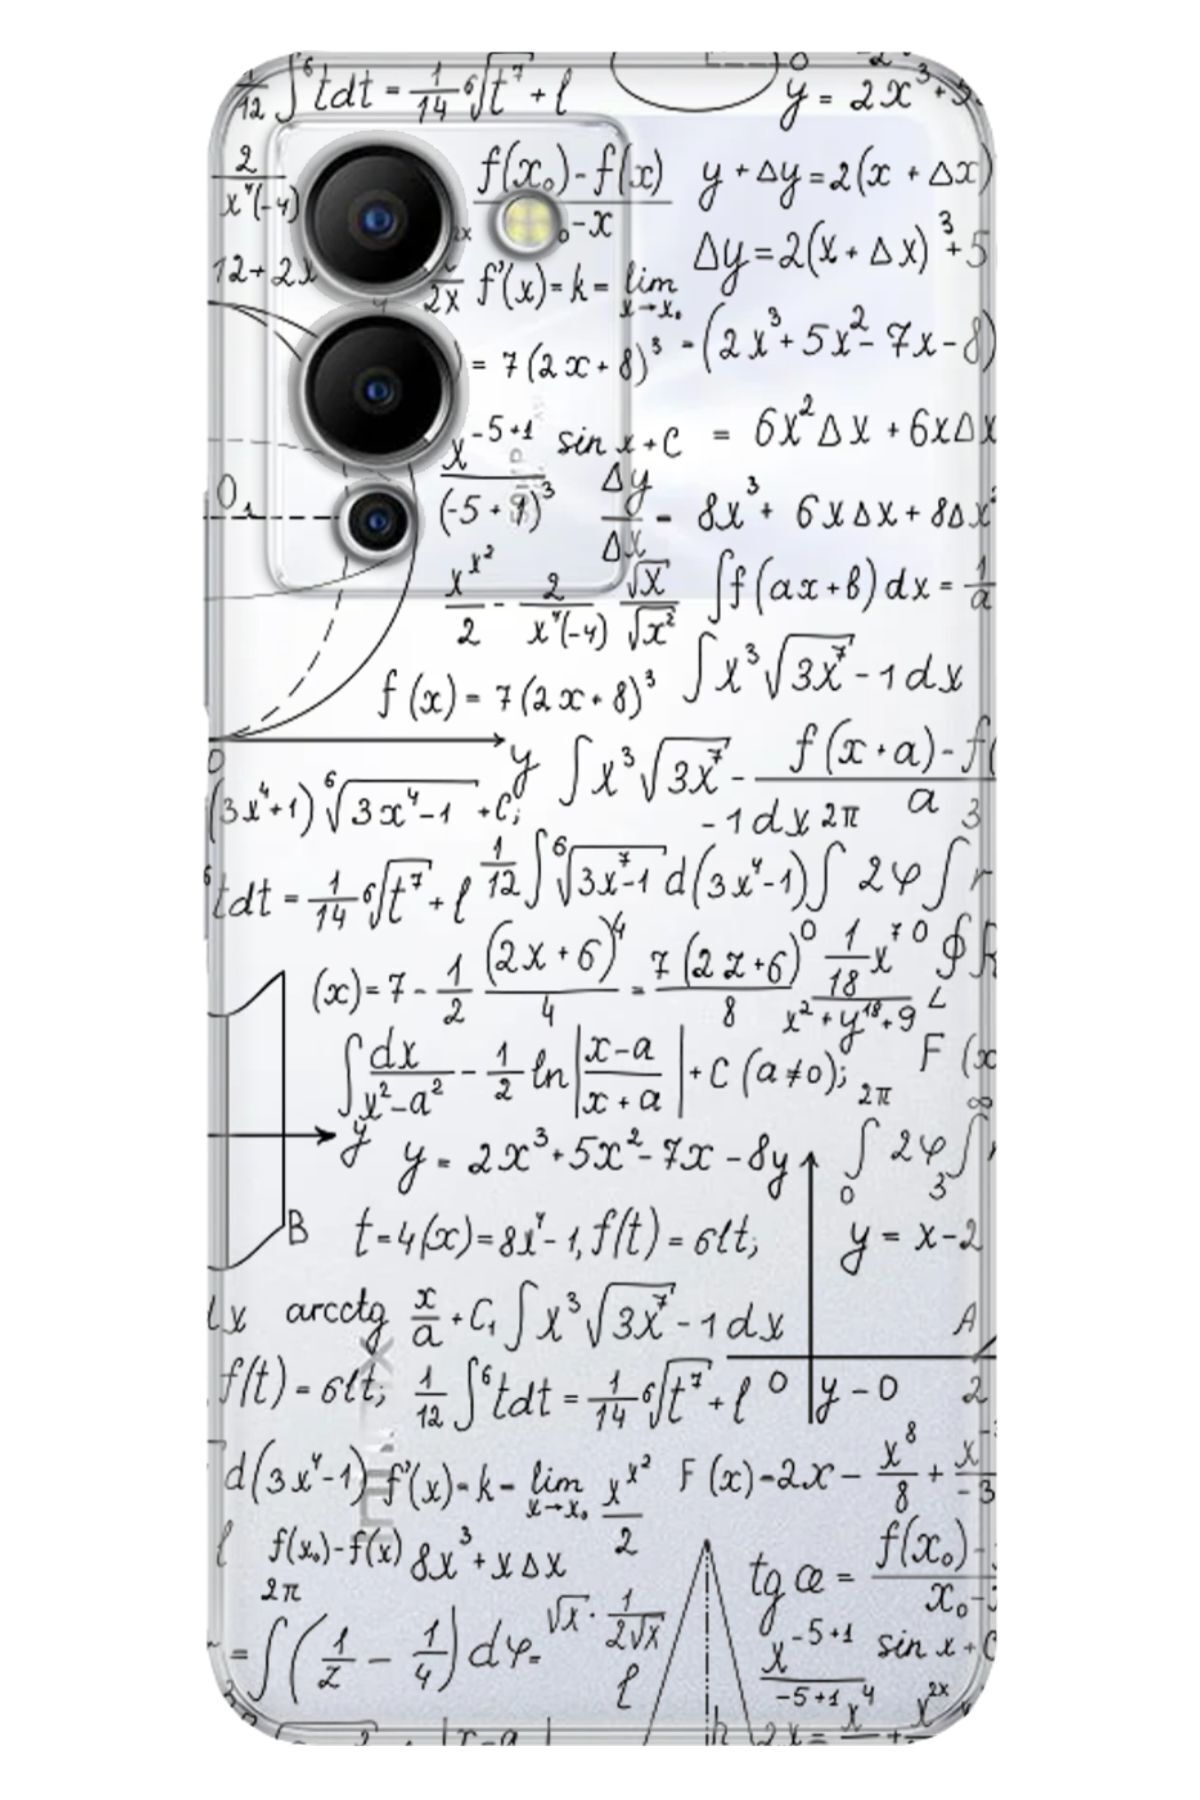 1/12 ∫ ⁶tdt = 1/14 ⁶√t⁷ + l
y = 2x³ + 5
2/x⁴(-4) f(x₀) - f(x) y + Δy = 2(x + Δx)
₀ - x
Δy = 2(x + Δx)³ + 5
12 + 2x 2x f'(x) = k = lim x→x₀
= 7(2x + 8)³ - (2x³ + 5x² - 7x - 8)
x⁻⁵⁺¹/(-5+1)³ sin x + C = 6x²Δx + 6xΔx
0₁ Δy/Δx - 8x³ + 6xΔx + 8Δx²
x^x²/2 - 2/x⁴(-4) √x/√x² ∫f(ax+b)dx = 1/a
f(x) = 7(2x + 8)³ ∫x³√3x⁷ - 1dx
0 y ∫x³√3x⁷ - f(x+a) - f(
a
(3x⁴+1) ⁶√3x⁴-1 + C; -1dx 2π 3
⁶tdt = 1/14 ⁶√t⁷ + l 1/12 ∫ ⁶√3x⁷-1 d(3x⁴-1) ∫ 2φ ∫ r
(x) = 7 - 1/2 (2x+6)⁴/4 = 7(2z+6)⁰/8 1/18 x⁷⁰ ∮
x² + y¹⁸ + 9 L
∫ dx/x²-a² - 1/2 ln|x-a/x+a| + C (a≠0); F (x
2π ∞
y y = 2x³ + 5x² - 7x - 8y ∫ 2φ ∫ r
0 3
B t = 4(x) = 8x⁴ - 1, f(t) = 6lt; y = x - 2
x arcctg x/a + C₁ ∫x³√3x⁷ - 1dx A
infinix
f(t) = 6lt; 1/12 ∫ ⁶tdt = 1/14 ⁶√t⁷ + l 0 y - 0 2
d(3x⁴-1) f'(x) = k - lim x→x₀ x^x²/2 F(x) - 2x - x⁸/8 + x/-3
l f(x₀) - f(x) 8x³ + xΔx tg æ = f(x₀) -
2π x₀ -
= ∫(1/z - 1/4)dφ = √x · 1/2√x x⁻⁵⁺¹/-5+1 sin x + C
l x⁴ x²ˣ
x-a h 2x = +